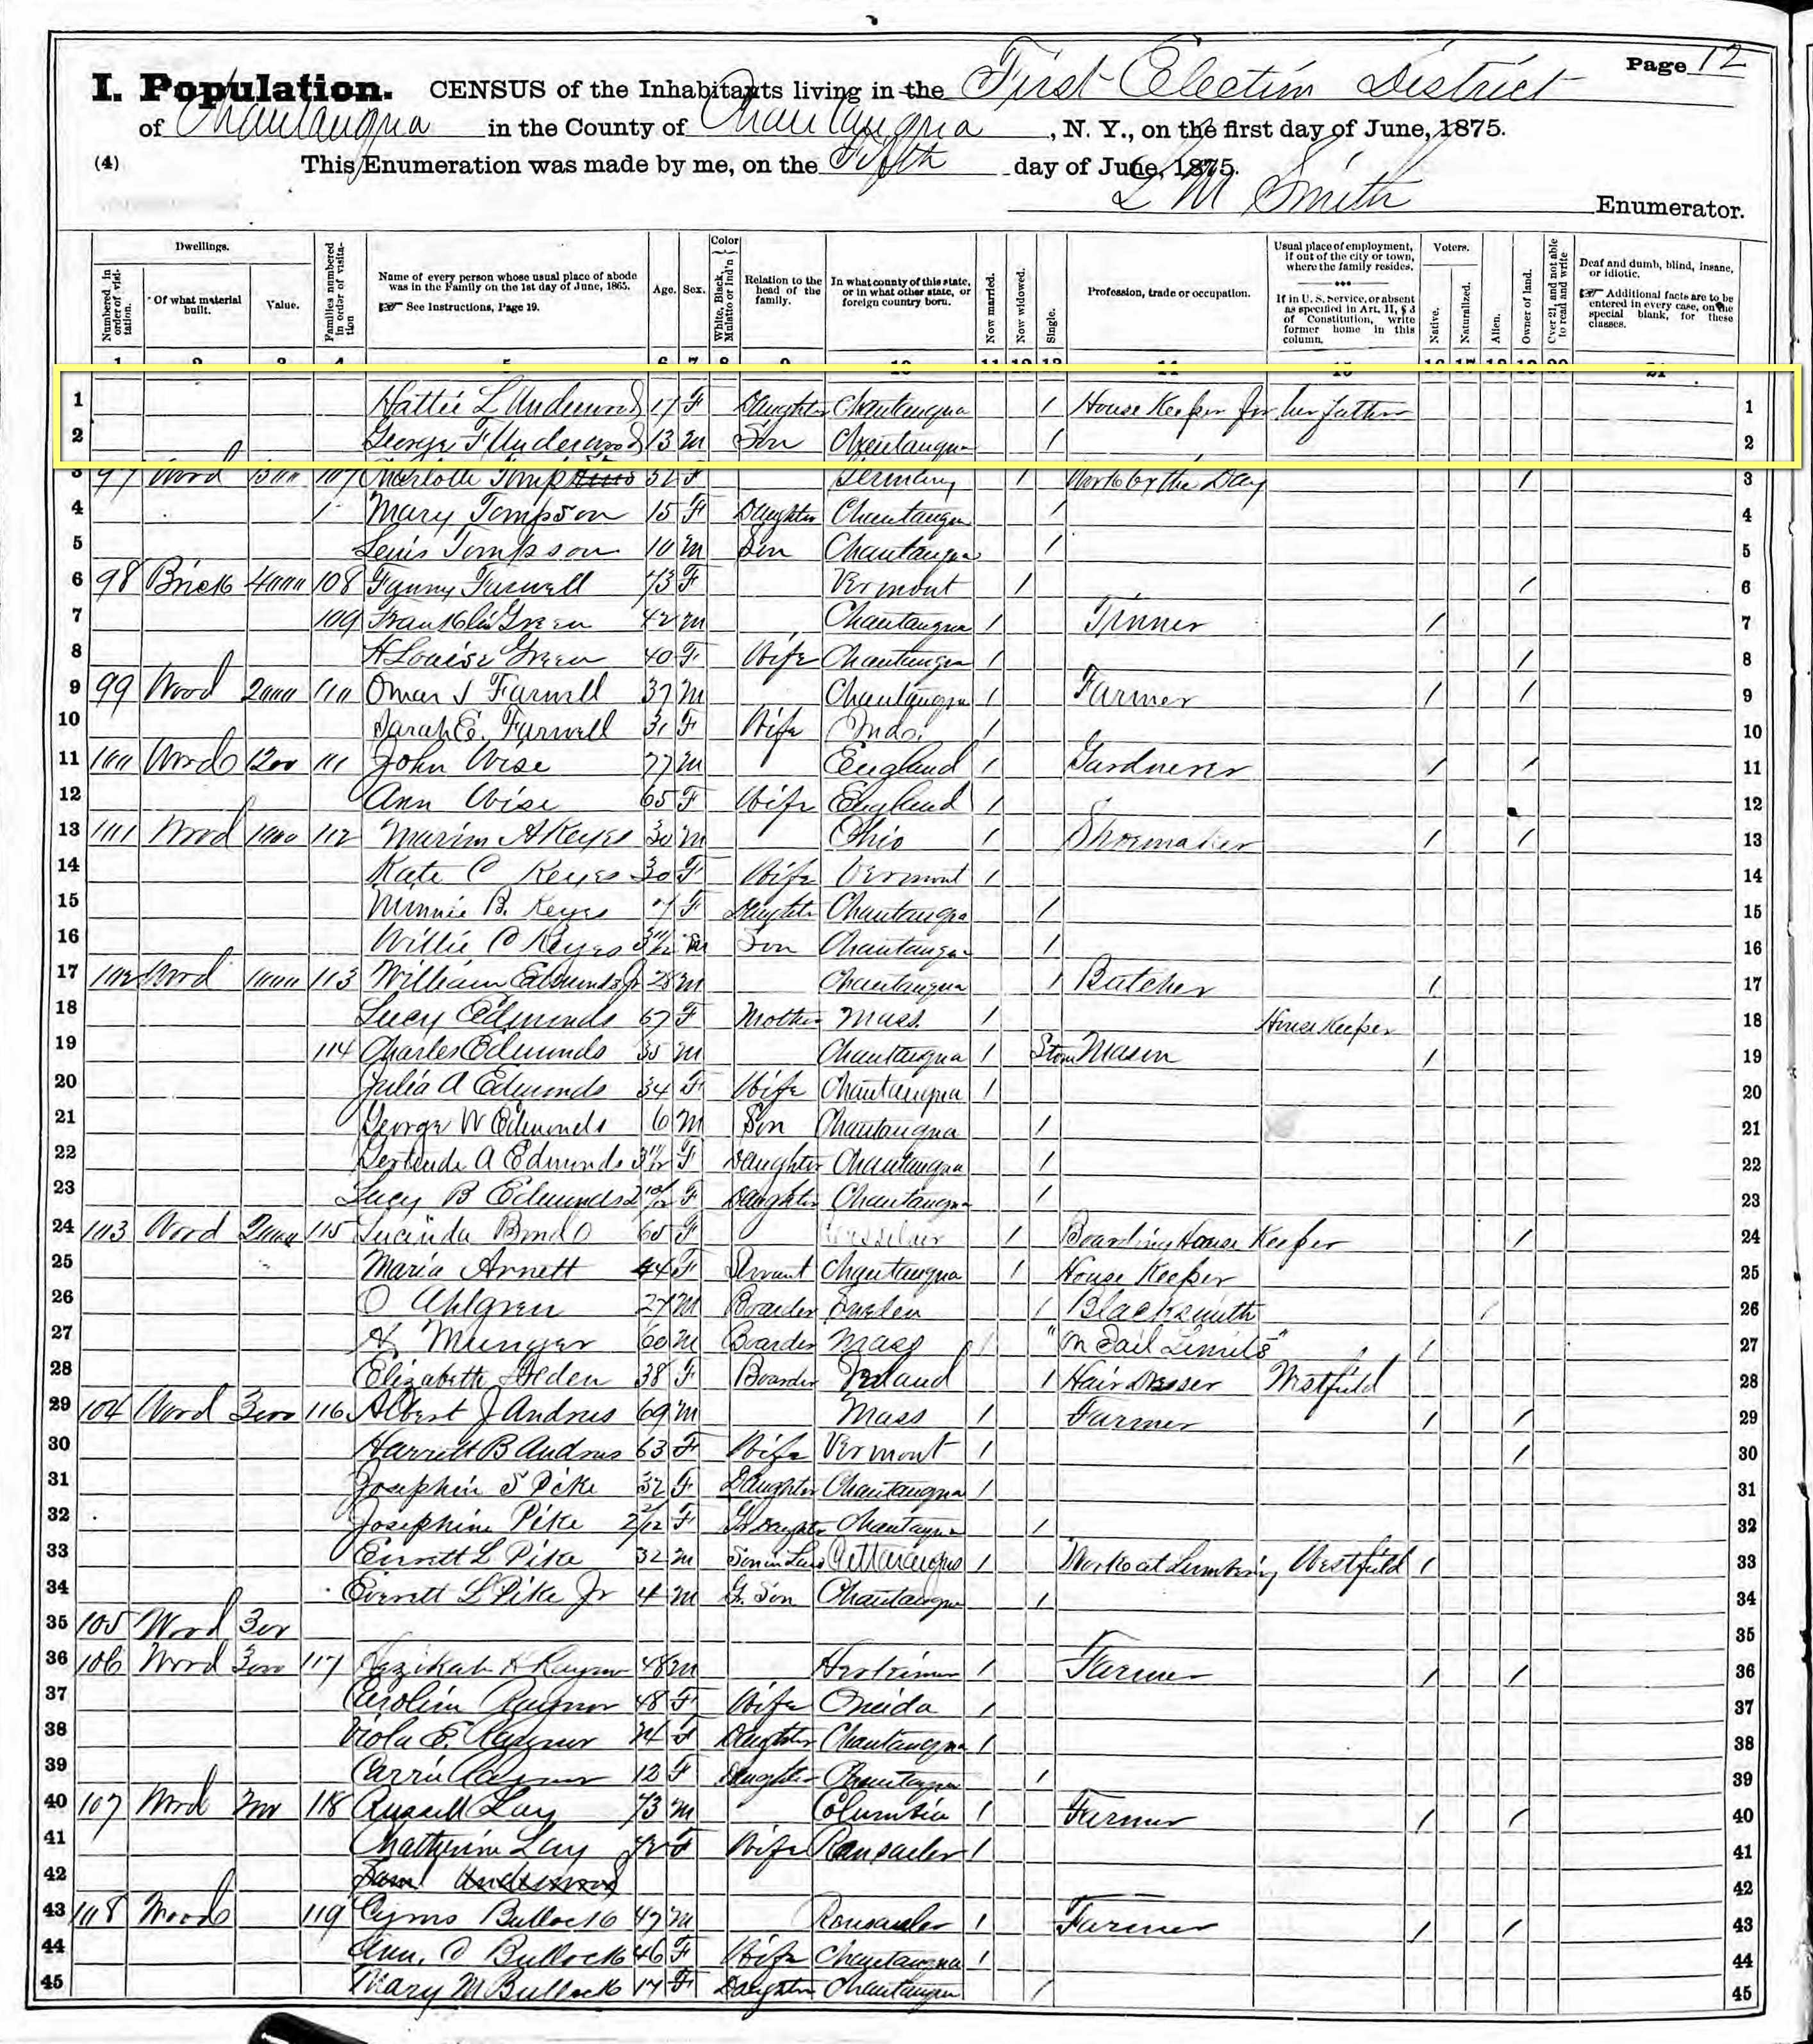 Page 12
I. Population. CENSUS of the Inhabitants living in the First Election District
of Chautauqua in the County of Chautauqua, N. Y., on the first day of June, 1875.
(4) This Enumeration was made by me, on the Fifth day of June, 1875.
L M Smith Enumerator.
Dwellings.
Numbered in order of visitation.
Of what material built.
Value.
Families numbered in order of visitation
Name of every person whose usual place of abode was in the Family on the 1st day of June, 1865.
See Instructions, Page 19.
Age.
Sex.
Color
White, Black, Mulatto or Ind'n
Relation to the head of the family.
In what county of this state, or in what other state, or foreign country born.
Now married.
Now widowed.
Single.
Profession, trade or occupation.
Usual place of employment, if out of the city or town, where the family resides.
If in U. S. Service, or absent as specified in Art. II, § 3 of Constitution, write former home in this column.
Voters.
Native.
Naturalized.
Alien.
Owner of land.
Over 21, and not able to read and write
Deaf and dumb, blind, insane, or idiotic.
Additional facts are to be entered in every case, on the special blank, for these classes.
1 Hattie L Underwood 17 F Daughter Chautauqua / House Keeper for her father 1
2 George F Underwood 13 M Son Chautauqua / 2
3 97 Wood 107 Charlotte 52 F Germany / Work by the Day / 3
4 Mary Tompson 15 F Daughter Chautauqua / 4
5 Lewis Tompson 10 M Son Chautauqua / 5
6 98 Brick 4000 108 Fanny Farwell 73 F Vermont / / 6
7 109 Franklin Green 42 M Chautauqua / Tinner / 7
8 H Louise Green 40 F Wife Chautauqua / / 8
9 99 Wood 2000 110 Omar J Farwell 37 M Chautauqua / Farmer / / 9
10 Sarah E. Farwell 31 F Wife / 10
11 100 Wood 1200 111 John Wise 77 M England / Gardnerer / / 11
12 Ann Wise 65 F Wife England / 12
13 101 Wood 1000 112 A Keyes 30 M Ohio / Shoemaker / / 13
14 Kate C Keyes 30 F Wife Vermont / 14
15 Minnie B. Keyes 7 F Daughter Chautauqua / 15
16 Willie C Keyes 3 11/12 M Son Chautauqua / 16
17 102 Wood 1000 113 William Edmunds Jr 28 M Chautauqua / Butcher / 17
18 Lucy Edmunds 67 F Mother Mass. / House Keeper 18
19 114 Charles Edmunds 35 M Chautauqua / Stone Mason / 19
20 Julia A Edmunds 34 F Wife Chautauqua / 20
21 George W Edmunds 6 M Son Chautauqua / 21
22 Gertrude A Edmunds 3 11/12 F Daughter Chautauqua / 22
23 Lucy B Edmunds 2 10/12 F Daughter Chautauqua / 23
24 103 Wood 2000 115 Lucinda Bond 65 F / Boarding House Keeper / 24
25 Maria Arnett 44 F Servant Chautauqua / House Keeper 25
26 O Ahlgren 27 M Boarder Sweden / Blacksmith / 26
27 A. Munger 60 M Boarder Mass / "On Jail Limits" / 27
28 Elizabeth 38 F Boarder Ireland / Hair Dresser Westfield 28
29 104 Wood 3000 116 Albert J Andrus 69 M Mass / Farmer / / 29
30 Harriett B Andrus 63 F Wife Vermont / / 30
31 Josephin S Pike 32 F Daughter Chautauqua / 31
32 Josephine Pike 2/12 F Gr Daughter Chautauqua / 32
33 Everett L Pike 32 M Son in Law Cattaraugus / Work at Lumbring Westfield / 33
34 Everett L Pike Jr 4 M G. Son Chautauqua / 34
35 105 Wood 300 35
36 106 Wood 3000 117 Hezikah Raynor 48 M Herkimer / Farmer / / 36
37 Caroline Raynor 48 F Wife Oneida / 37
38 Viola E. Raynor 24 F Daughter Chautauqua / 38
39 Carrie Raynor 12 F Daughter Chautauqua / 39
40 107 Wood 118 Russell Lay 73 M Columbia / Farmer / / 40
41 Lay 72 F Wife Ransaeler / 41
42 Underwood 42
43 108 Wood 119 Cyrus Bullock 47 M Ransaeler / Farmer / / 43
44 Ann. C Bullock 46 F Wife Chautauqua / 44
45 Mary M Bullock 17 F Daughter Chautauqua / 45